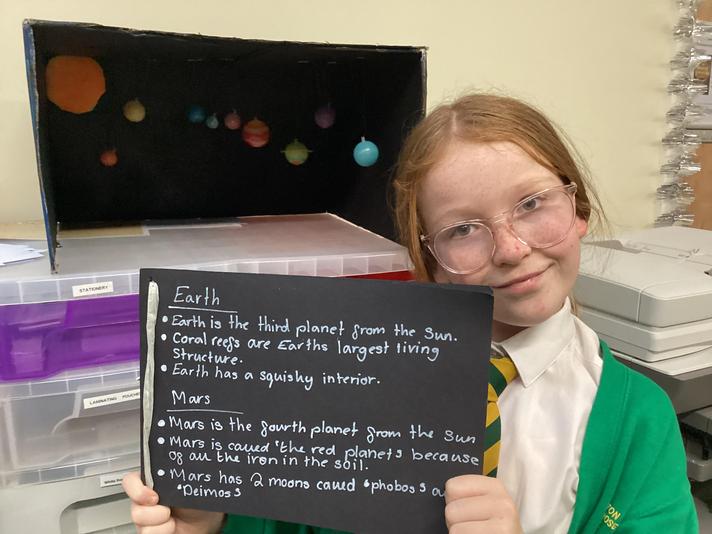 STATIONERY
LAMINATING POUCHES
Earth
• Earth is the third planet from the Sun.
• Coral reefs are Earths largest living
structure.
• Earth has a squishy interior.
Mars
• Mars is the fourth planet from the Sun
• Mars is called 'the red planet' because
of all the iron in the soil.
• Mars has 2 moons called 'phobos'
'Deimos'
TON